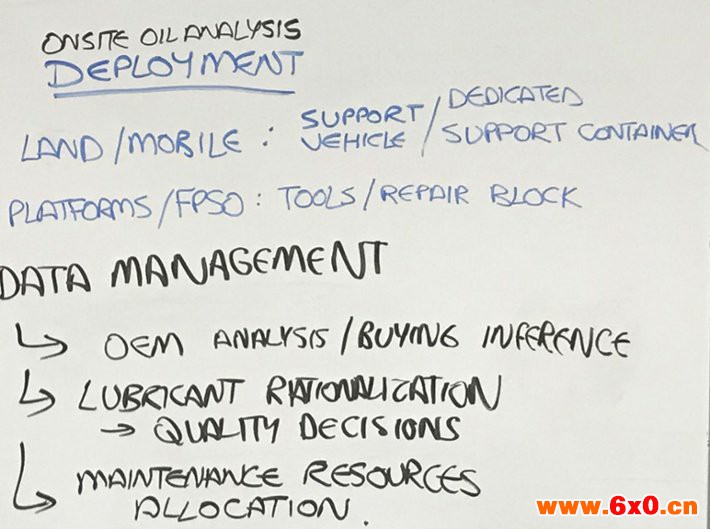 ONSITE OIL ANALYSIS
DEPLOYMENT
LAND/MOBILE: SUPPORT VEHICLE / DEDICATED SUPPORT CONTAINER
PLATFORMS/FPSO: TOOLS/REPAIR BLOCK
DATA MANAGEMENT
↳ OEM ANALYSIS/BUYING INFERENCE
↳ LUBRICANT RATIONALIZATION
→ QUALITY DECISIONS
↳ MAINTENANCE RESOURCES
ALLOCATION.
www.6x0.cn